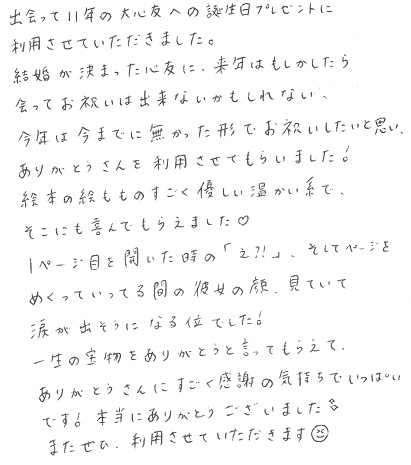 出会って11年の大心友への誕生日プレゼントに
利用させていただきました。
結婚が決まった心友に、来年はもしかしたら
会ってお祝いは出来ないかもしれない、
今年は今までに無かった形でお祝いしたいと思い、
ありがとうさんを利用させてもらいました!
絵本の絵もものすごく優しい温かい系で、
そこにも喜んでもらえました♡
1ページ目を開いた時の「え?!」、そしてページを
めくっていってる間の彼女の顔、見ていて
涙が出そうになる位でした!
一生の宝物をありがとうと言ってもらえて、
ありがとうさんにすごく感謝の気持ちでいっぱい
です! 本当にありがとうございました
またぜひ、利用させていただきます☺